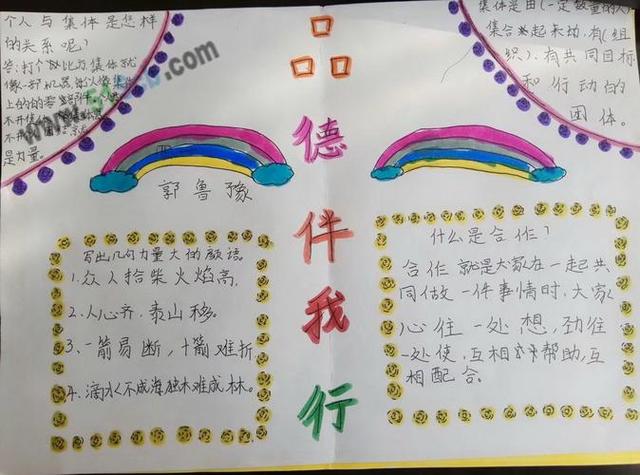 个人与集体是怎样
的关系呢?
答:打个比方集体就
像一部机器,
上的的零
不开
不开
是力量。
品德伴我行
集体是由(一定数量的人)
集合起来动,有(组
织),有共同目标
和行动的
团体。
郭鲁豫
写出几句力量大的颜语
1.众人抬柴火焰高,
2.人心齐,泰山移。
3、一箭易断,十箭难折
4、滴水不成海独木难成林。
什么是合作?
合作就是大家在一起共
同做一件事情时,大家
心往一处想,劲往
一处使,互相帮助,互
相配合。